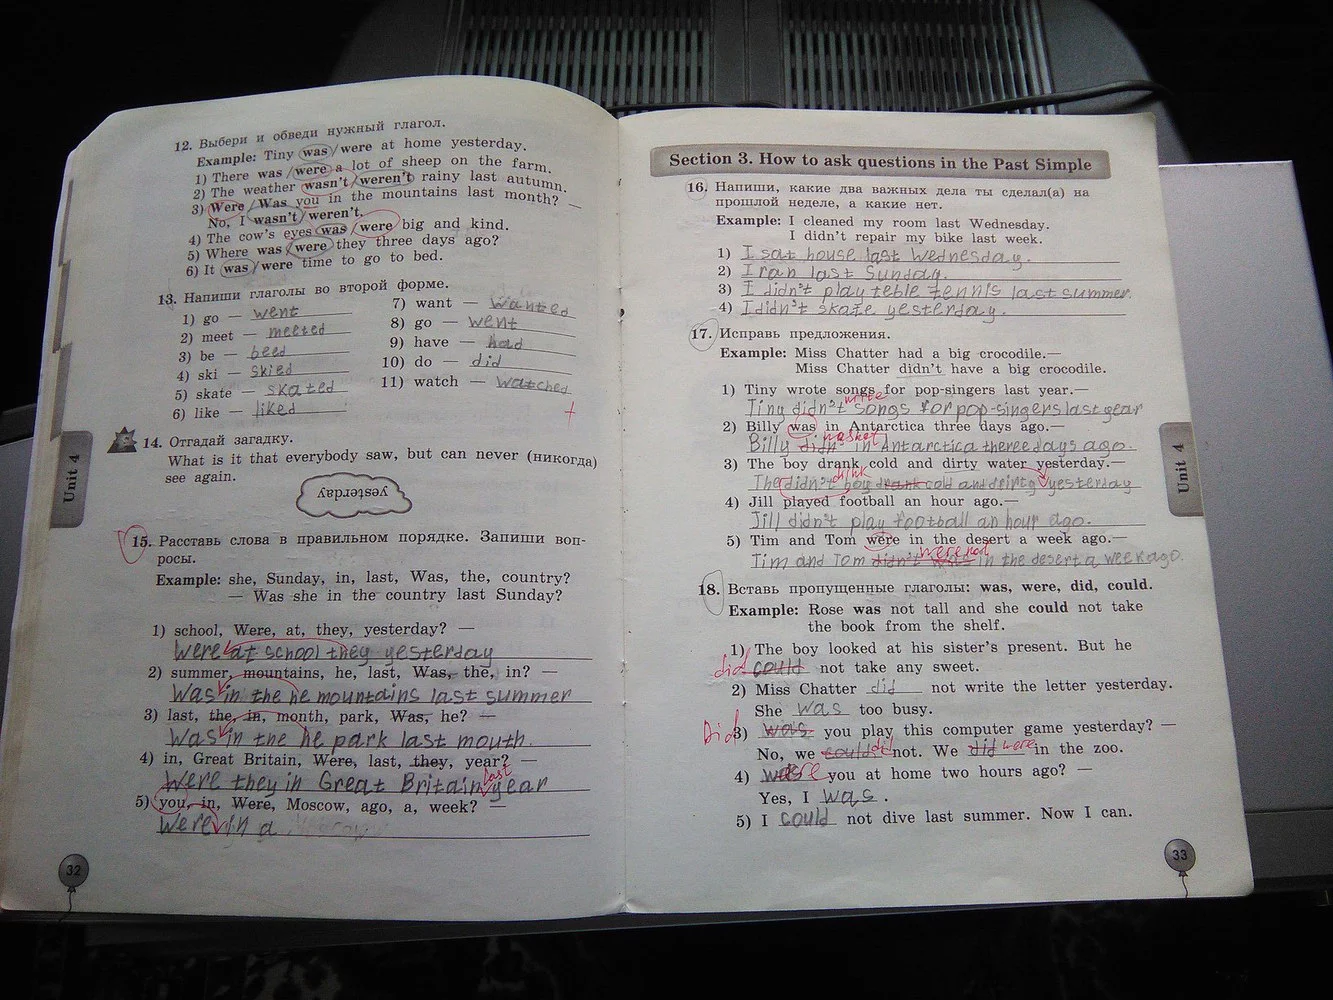 12. Выбери и обведи нужный глагол.
Example: Tiny was/were at home yesterday.
1) There was/were a lot of sheep on the farm.
2) The weather wasn't/weren't rainy last autumn.
3) Were/Was you in the mountains last month? —
No, I wasn't/weren't.
4) The cow's eyes was/were big and kind.
5) Where was/were they three days ago?
6) It was/were time to go to bed.
13. Напиши глаголы во второй форме.
1) go — went
2) meet — meeted
3) be — beed
4) ski — skied
5) skate — skated
6) like — liked
7) want — wanted
8) go — went
9) have — had
10) do — did
11) watch — watched
+
14. Отгадай загадку.
What is it that everybody saw, but can never (никогда)
see again.
yesterday
15. Расставь слова в правильном порядке. Запиши воп-
росы.
Example: she, Sunday, in, last, Was, the, country?
— Was she in the country last Sunday?
1) school, Were, at, they, yesterday? —
Were at school they yesterday
2) summer, mountains, he, last, Was, the, in? —
Was in the he mountains last summer
3) last, the, in, month, park, Was, he? —
Was in the he park last mouth.
4) in, Great Britain, Were, last, they, year? —
last
Were they in Great Britain year
5) you, in, Were, Moscow, ago, a, week? —
Were in a
32
Unit 4
Section 3. How to ask questions in the Past Simple
16. Напиши, какие два важных дела ты сделал(а) на
прошлой неделе, а какие нет.
Example: I cleaned my room last Wednesday.
I didn't repair my bike last week.
1) I sat house last Wednesday.
2) I ran last Sunday.
3) I didn't play teble tennis last summer.
4) I didn't skate yesterday.
17. Исправь предложения.
Example: Miss Chatter had a big crocodile.—
Miss Chatter didn't have a big crocodile.
1) Tiny wrote songs for pop-singers last year.—
write
Tiny didn't songs for pop-singers last year
2) Billy was in Antarctica three days ago.—
was not
Billy didn't in Antarctica thereedays ago.
3) The boy drank cold and dirty water yesterday.—
drink
The didn't boy drank cold and dirty yesterday
4) Jill played football an hour ago.—
Jill didn't play football an hour ago.
5) Tim and Tom were in the desert a week ago.—
were not
Tim and Tom didn't was in the desert a week ago.
18. Вставь пропущенные глаголы: was, were, did, could.
Example: Rose was not tall and she could not take
the book from the shelf.
1) The boy looked at his sister's present. But he
did could not take any sweet.
2) Miss Chatter did not write the letter yesterday.
She was too busy.
Did 3) was you play this computer game yesterday? —
No, we could did not. We did were in the zoo.
4) were you at home two hours ago? —
Yes, I was.
5) I could not dive last summer. Now I can.
33
Unit 4